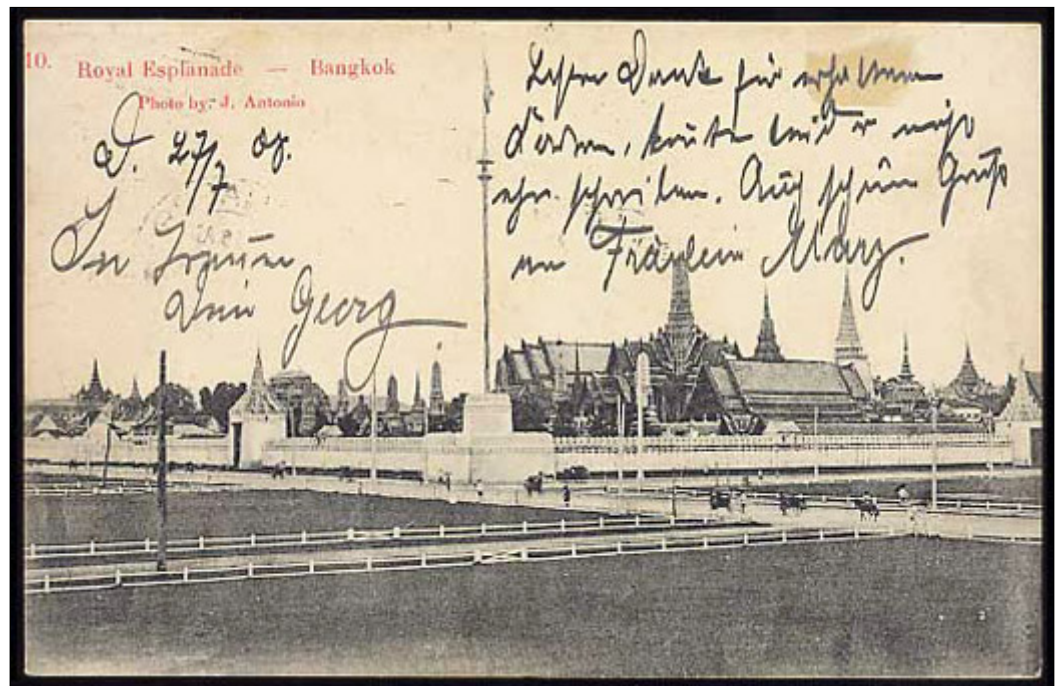 10. Royal Esplanade — Bangkok
Photo by: J. Antonio
D. 27/7 08.
In Treuen
Dein Georg
Besten Dank für erhaltene
Karten, konnte leider nicht
eher schreiben. Auch schönen Gruß
an Fräulein Mary.